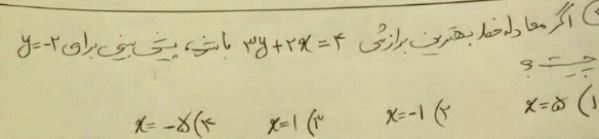 ۲) اگر معادله خط بهترین برازشی ۳y+۲x=۴ باشد، پیش بینی برای y=-۲
چیست؟
۱) x=۵ ۲) x=-۱ ۳) x=۱ ۴) x=-۵